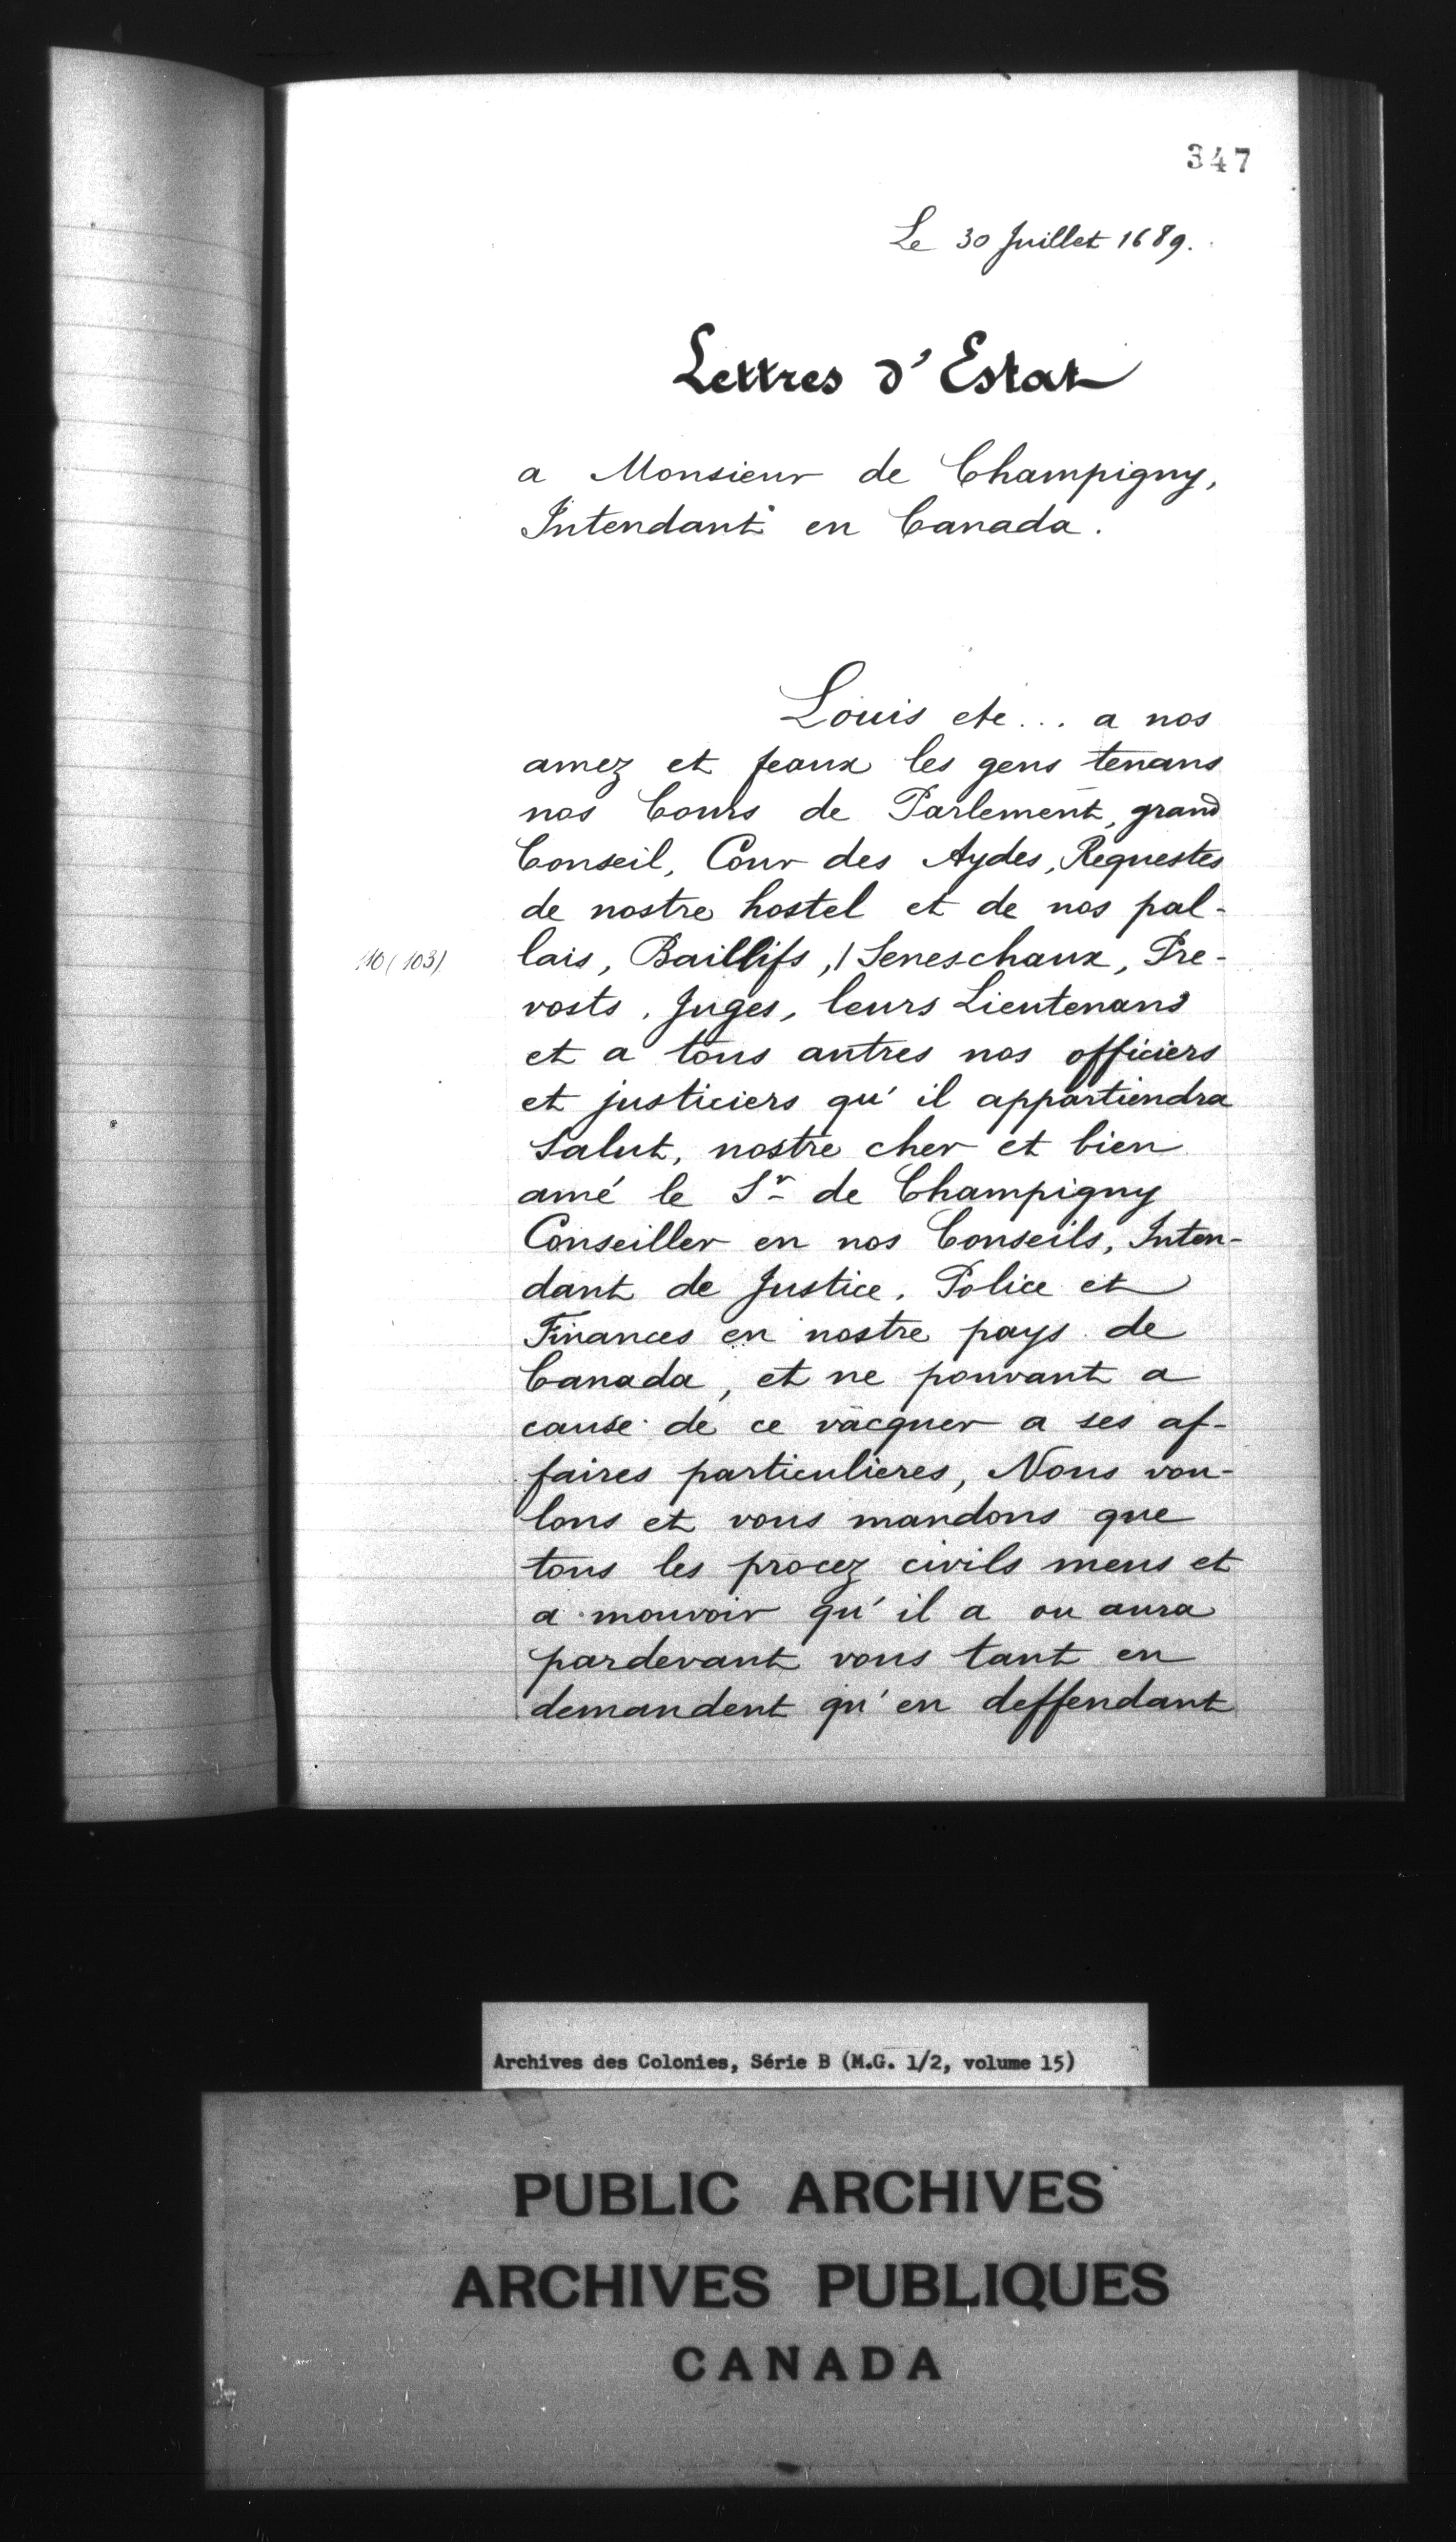 347
Le 30 Juillet 1689.
Lettres d'Estat
a Monsieur de Champigny,
Intendant en Canada.
Louis etc... a nos
amez et feaux les gens tenans
nos Cours de Parlement, grand
Conseil, Cour des Aydes, Requestes
de nostre hostel et de nos pal-
110 (103)
lais, Baillifs, / Seneschaux, Pre-
vosts, Juges, leurs Lieutenans
et a tous autres nos officiers
et justiciers qu'il appartiendra
Salut, nostre cher et bien
amé le Sr de Champigny
Conseiller en nos Conseils, Inten-
dant de Justice, Police et
Finances en nostre pays de
Canada, et ne pouvant a
cause de ce vacquer a ses af-
faires particulieres, Nous vou-
lons et vous mandons que
tous les procez civils meus et
a mouvoir qu'il a ou aura
pardevant vous tant en
demandent qu'en deffendant
Archives des Colonies, Série B (M.G. 1/2, volume 15)
PUBLIC ARCHIVES
ARCHIVES PUBLIQUES
CANADA